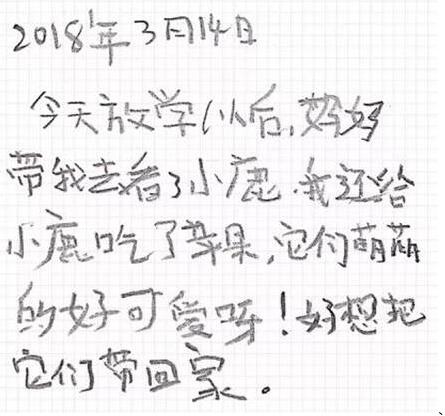 2018年3月14日
今天放学以后,妈妈
带我去看了小鹿.我还给
小鹿吃了苹果,它们萌萌
的好可爱呀!好想把
它们带回家。